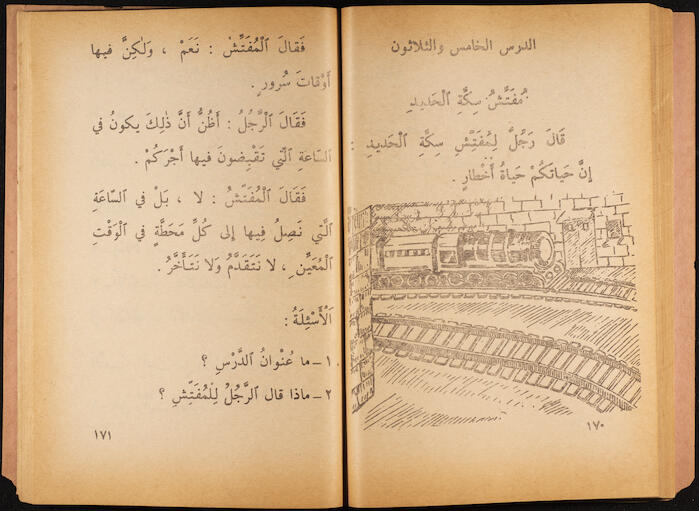 الدرس الخامس والثلاثون
مُفَتِّشُ سِكَّةِ ٱلْحَدِيدِ
قَالَ رَجُلٌ لِمُفَتِّشِ سِكَّةِ ٱلْحَدِيدِ :
إِنَّ حَيَاتَكُمْ حَيَاةُ أَخْطَارٍ .
١٧٠
فَقَالَ ٱلْمُفَتِّشُ : نَعَمْ ، وَلٰكِنَّ فِيها
أَوْقَاتَ سُرورٍ .
فَقَالَ ٱلرَّجُلُ : أَظُنُّ أَنَّ ذٰلِكَ يكونُ في
ٱلسَّاعَةِ ٱلَّتِي تَقْبِضونَ فيها أَجْرَكُمْ .
فَقَالَ ٱلْمُفَتِّشُ : لا ، بَلْ في ٱلسَّاعَةِ
ٱلَّتِي نَصِلُ فِيها إلى كُلِّ مَحَطَّةٍ في ٱلْوَقْتِ
ٱلْمُعَيَّنِ ، لا نَتَقَدَّمُ وَلا نَتَأَخَّرُ .
ٱلْأَسْئِلَةُ :
١ – ما عُنْوانُ ٱلدَّرْسِ ؟
٢ – ماذا قال ٱلرَّجُلُ لِلْمُفَتِّشِ ؟
١٧١